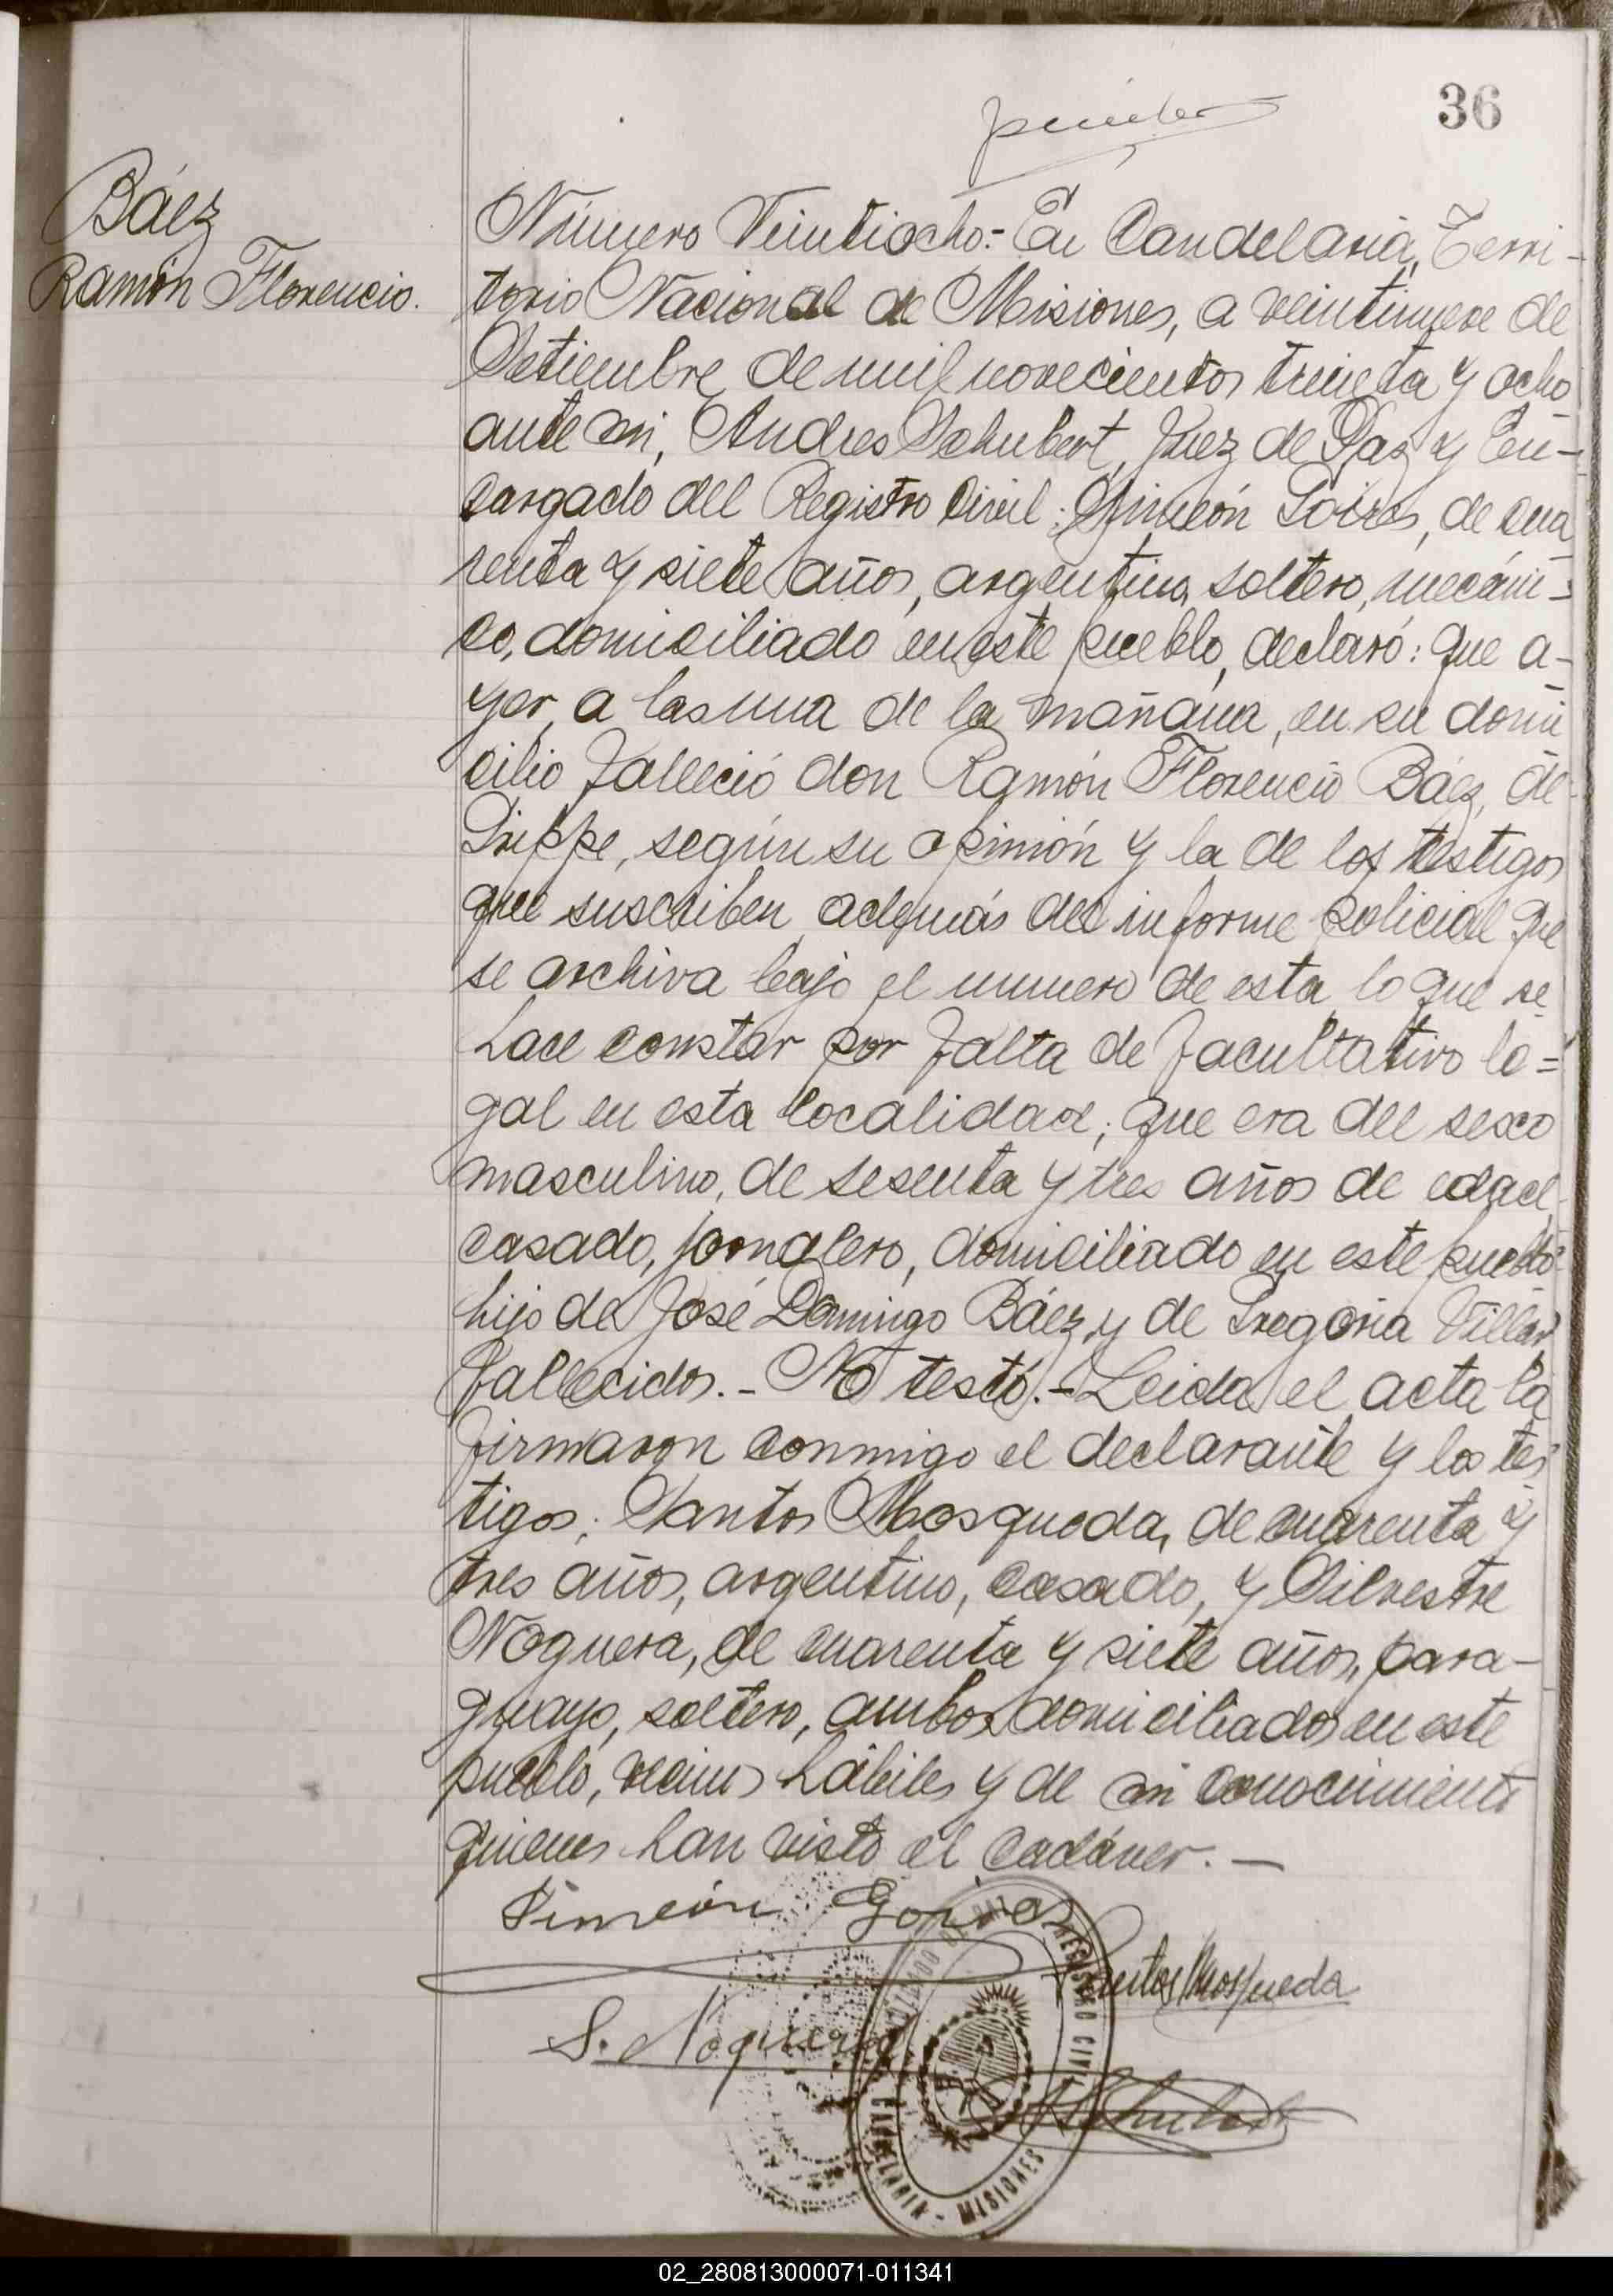 36
Báez
Ramón Florencio.
Número Veintiocho:- En Candelaria, Terri-
torio Nacional de Misiones, a veintinueve de
Setiembre de mil novecientos treinta y ocho
ante mi, Andres Schubert, Juez de Paz y En-
cargado del Registro Civil: Simeón Goires, de cua
renta y siete años, argentino, soltero, mecáni-
co, domiciliado en este pueblo, declaró: que a-
yer, a las una de la mañana, en su domi
cilio falleció don Ramón Florencio Báez, de
Grippe, según su opinión y la de los testigos
que suscriben además del informe policial que
se archiva bajo el numero de esta lo que se
hace constar por falta de facultativo le=
gal en esta localidad; que era del sexo
masculino, de sesenta y tres años de edad,
casado, jornalero, domiciliado en este pueblo
hijo de José Domingo Báez, y de Gregoria Villar
fallecidos.- No testó.- Leida el acta la
firmaron conmigo el declarante y los tes
tigos; Santos Mosqueda, de cuarenta y
tres años, argentino, casado, y Silvestre
Noguera, de cuarenta y siete años, para-
guayo, soltero, ambos domiciliados en este
pueblo, vecinos hábiles y de mi conocimiento
quienes han visto el cadáver.-
Simeón Goires
Santos Mosqueda
S. Noguera
Schubert
REGISTRO CIVIL
CANDELARIA - MISIONES
02_280813000071-011341